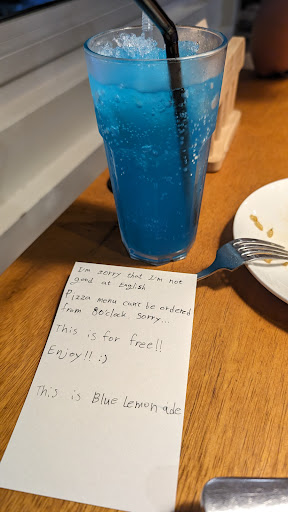 I'm sorry that I'm not
good at English
Pizza menu can't be ordered
from 8 o'clock. Sorry...
This is for free!!
Enjoy!! :)
This is Blue Lemonade